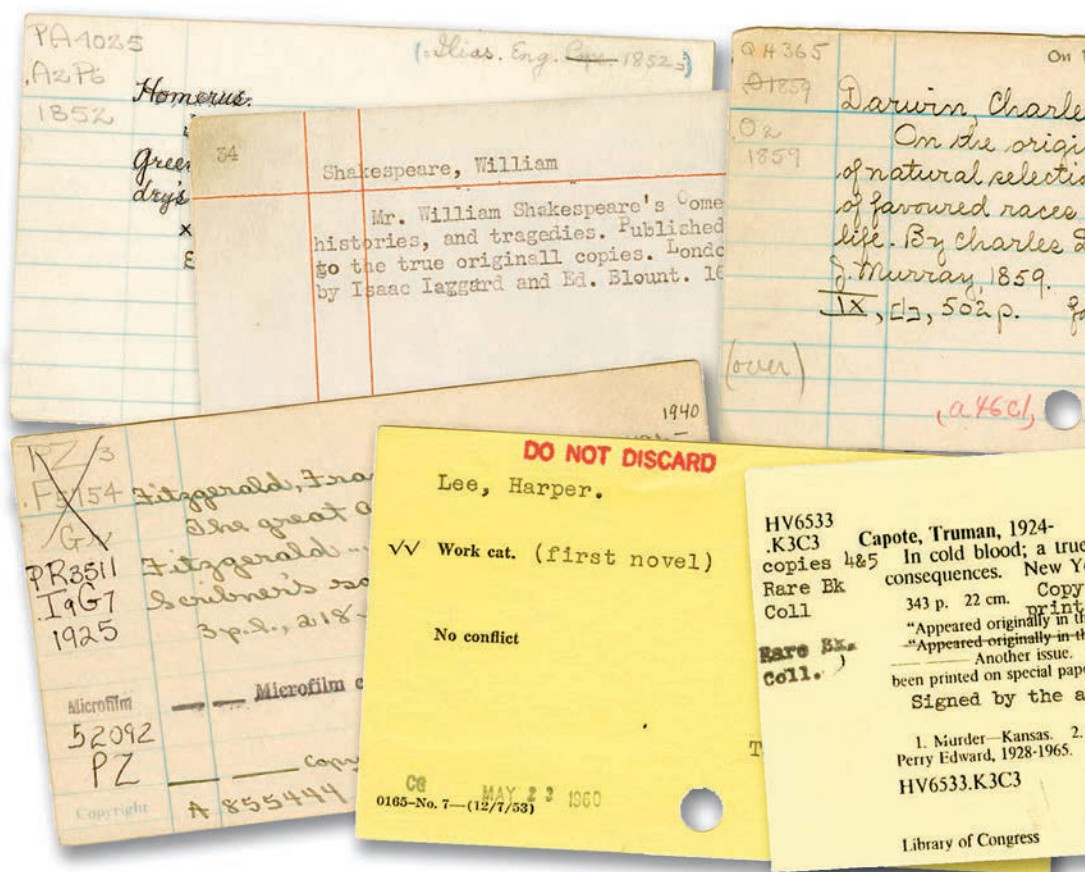 PA4025
.A2P6
1852
(:Ilias. Eng. Pope. 1852:)
Homerus.
Green
dry's
x
34
Shakespeare, William
Mr. William Shakespeare's Come
histories, and tragedies. Published
to the true originall copies. Londo
by Isaac Iaggard and Ed. Blount. 16
QH365
.O2
1859
On
Darwin, Charle
On the origi
of natural selectio
of favoured races
life. By Charles D
J. Murray, 1859.
IX, [1], 502 p.
(over)
(a46c1)
1940
PZ/3
.F5754
G
PR3511
.I9G7
1925
Fitzgerald, Fra
The great G
Fitzgerald ...
Scribner's so
3 p.l., 218
Microfilm
52092
PZ
Microfilm c
copy
Copyright
A 855444
DO NOT DISCARD
Lee, Harper.
√√ Work cat. (first novel)
No conflict
T
CG
MAY 23 1960
0165–No. 7—(12/7/53)
HV6533
.K3C3
copies 4&5
Rare Bk
Coll
Rare Bk.
Coll.)
Capote, Truman, 1924-
In cold blood; a true
consequences. New Yo
343 p. 22 cm. Copy
print
"Appeared originally in th
"Appeared originally in th
Another issue.
been printed on special pape
Signed by the a
1. Murder—Kansas. 2.
Perry Edward, 1928-1965.
HV6533.K3C3
Library of Congress